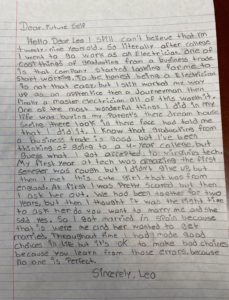 Dear, Future Self
Hello Dear Leo I still can't believe that I'm
twenty-nine years old. So literally after college
I went to go work as an Electrician. One of
cool things of graduation from a business trade
is that company started looking for me to
start working. To be honest being a Electrician
is not that easy but I still worked my way
as an apprentice then a Journeyman then
finally a master electrician all of this worth it.
One of the most wonderful things I did in my
life was buying my Parents there dream house
seeing there look in there face had told me
that I did it. I know that graduating from
a business trade is good but I've been
thinking of going to a 4-year college but
Guess what I got accepted to Virginia tech
My first year at tech was amazing the first
semester was rough but I didn't give up but
then I met this cute girl that was from
england. At first I was Pretty Scared but then
I ask her out. We had been together for two
years, but then I thought it was the right time
to ask her do you want to marry me and she
said yes. So I got married in Spain because
that is were me and her wanted to get
married. Throughout time I had made good
choices in life but it's ok to make bad choices
because you learn from those errors, because
no one is perfect.
Sincerely, Leo